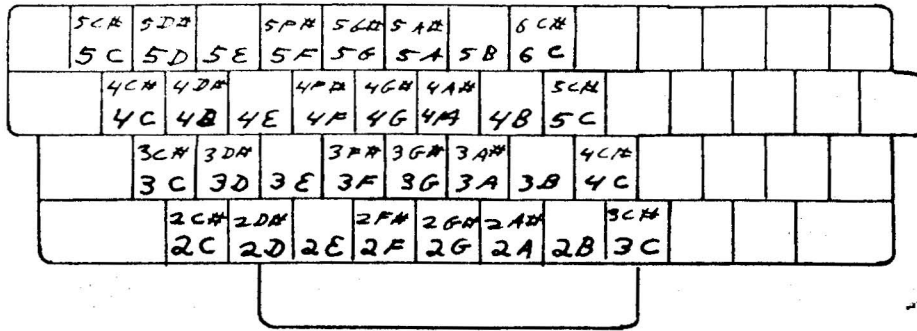 5C# 5D# 5F# 5G# 5A# 6C#
5C 5D 5E 5F 5G 5A 5B 6C
4C# 4D# 4F# 4G# 4A# 5C#
4C 4D 4E 4F 4G 4A 4B 5C
3C# 3D# 3F# 3G# 3A# 4C#
3C 3D 3E 3F 3G 3A 3B 4C
2C# 2D# 2F# 2G# 2A# 3C#
2C 2D 2E 2F 2G 2A 2B 3C